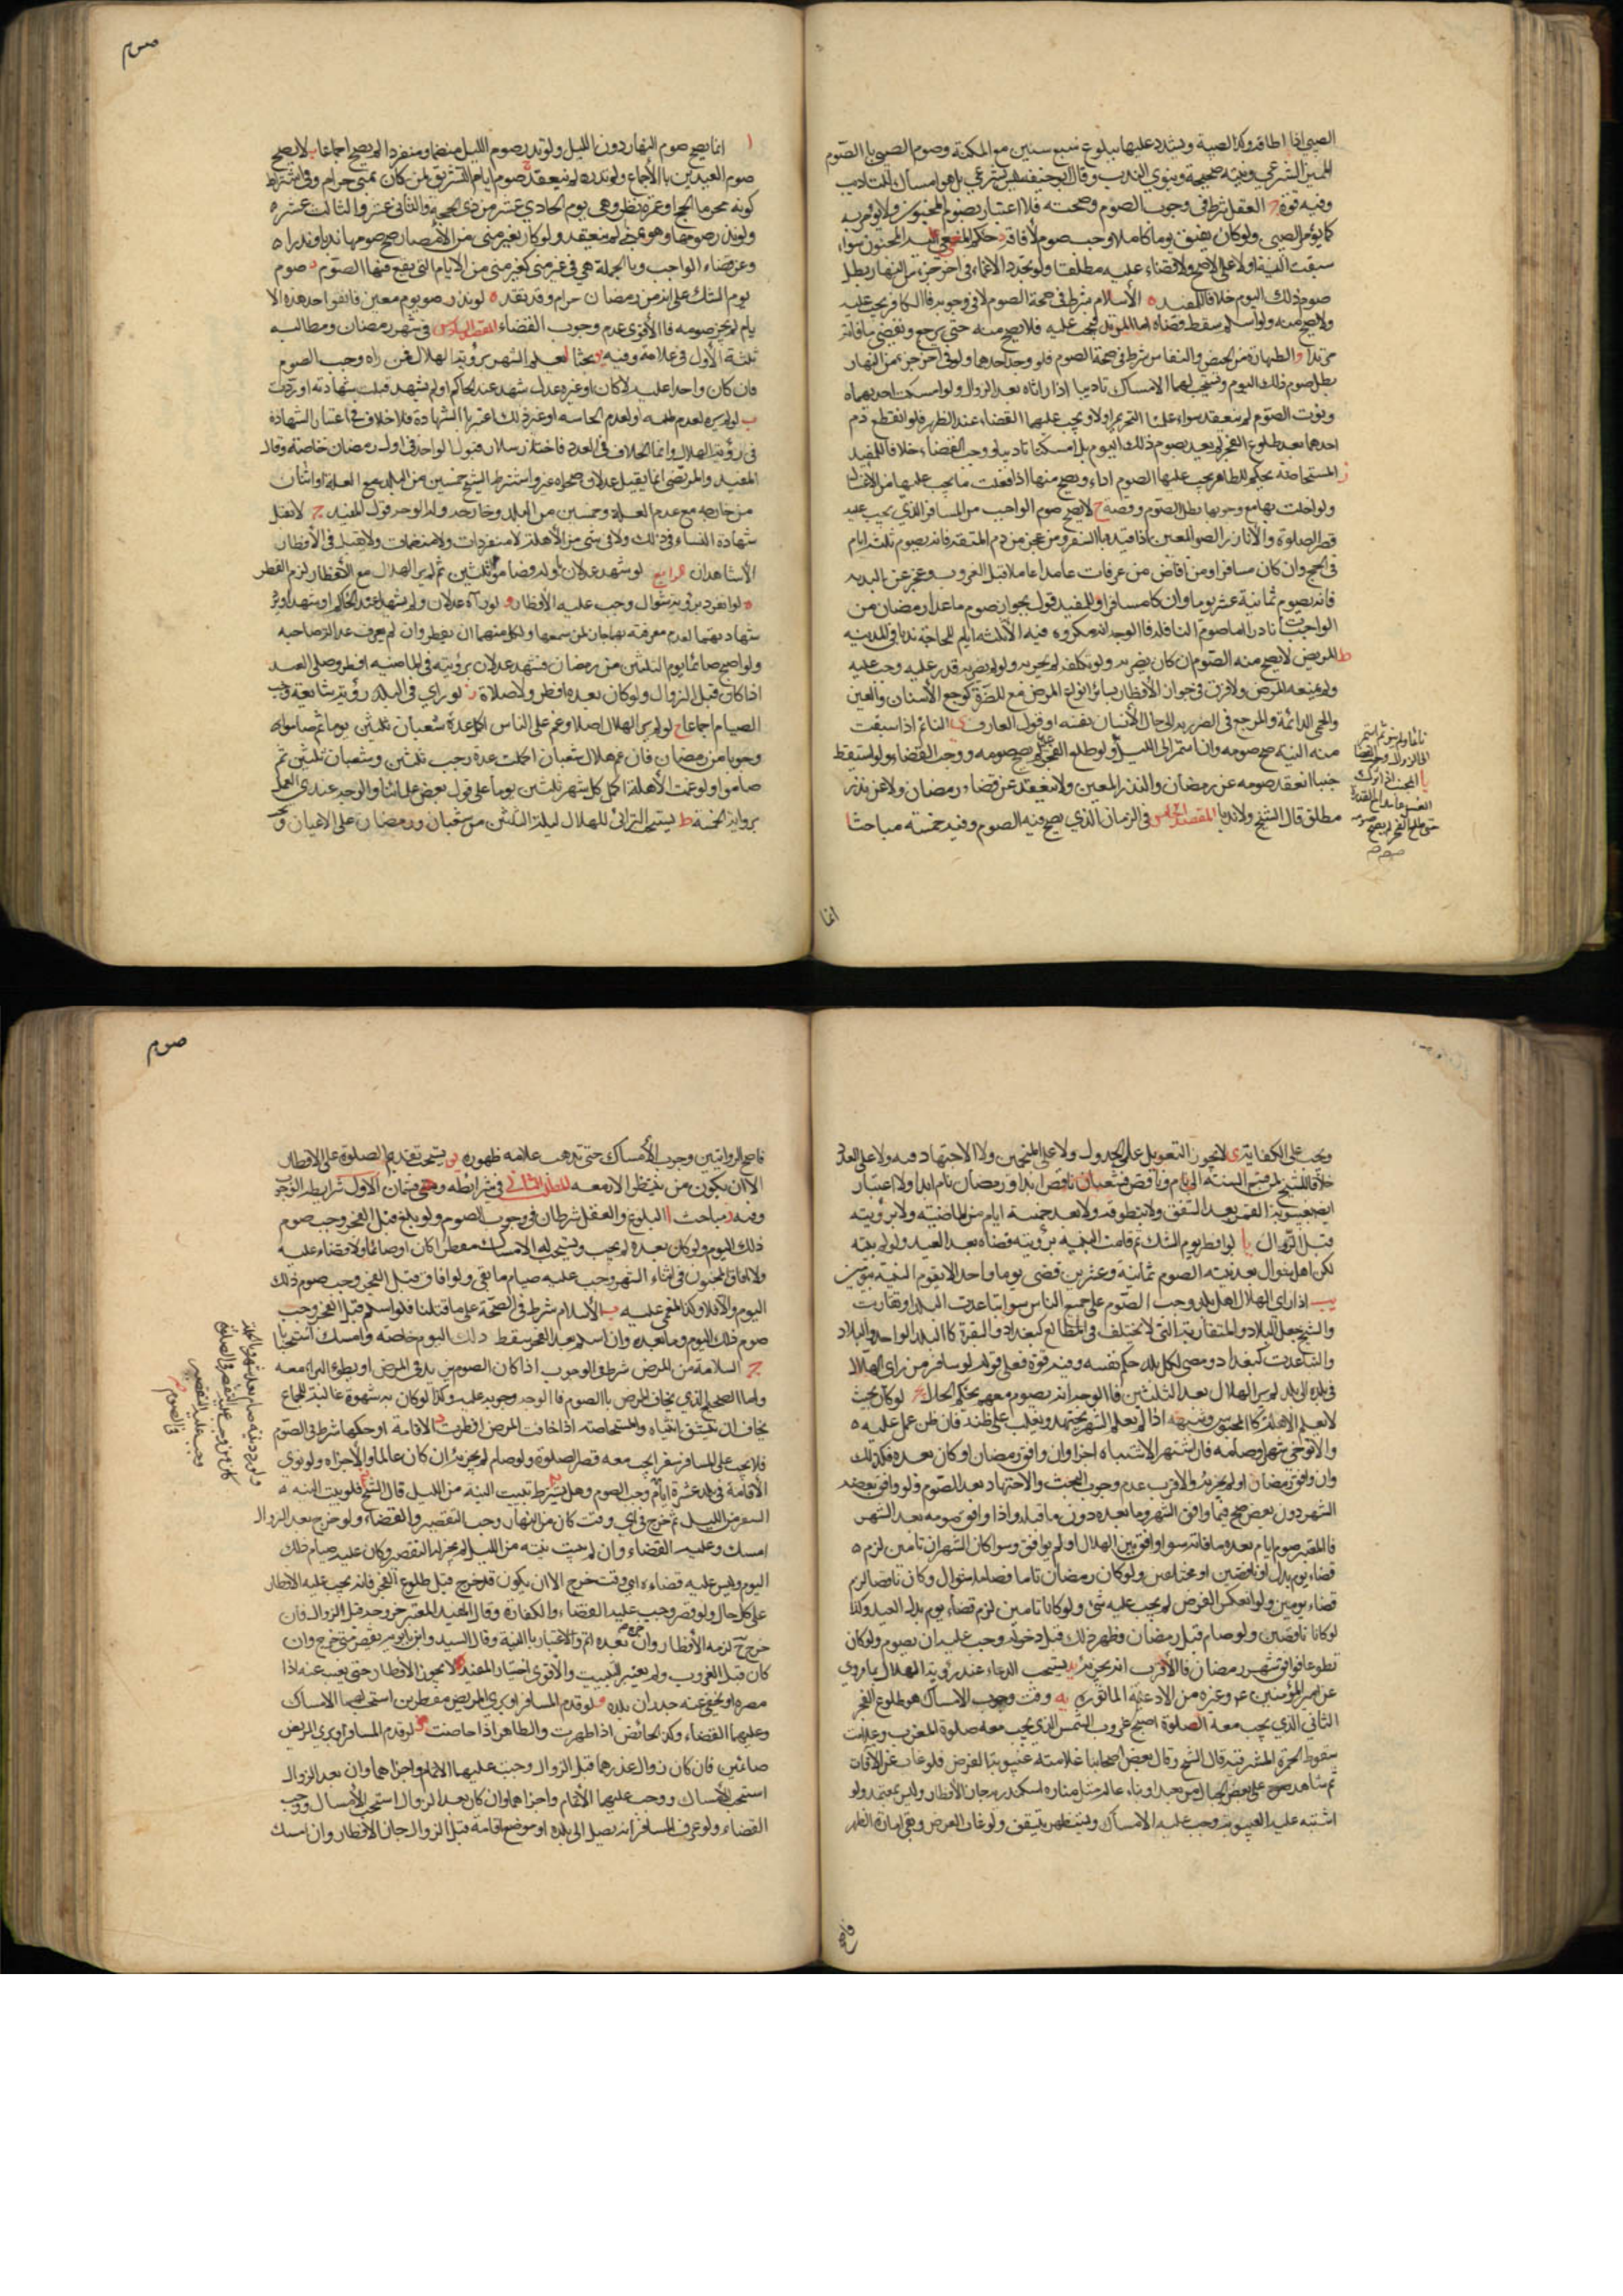 الصبي اذا اطاقه وكذا الصبية ويشدد عليهما ببلوغ سبع سنين مع المكنة وصوم الصبي باالصوم
المميز الشرعي ونيته صحيحة وينوي الندب وقال ابو حنيفة ليس بشرعي بل هو امساك للتاديب
وفيه قوة ج العقل شرط في وجوب الصوم وصحته فلا اعتبار بصوم المجنون ولا يؤمر به
كما يؤمر الصبي ولو كان يفيق يوما كاملا وجب صومه لافاقته د حكم المغمى عليه المجنون سواء
سبقت النية اولا على الاصح ولا قضاء عليه مطلقا ولو تجدد الاغماء في اخر جزء من النهار بطل
صوم ذلك اليوم خلافا للمفيد ه الأسلام شرط في صحة الصوم لا في وجوبه فاالكافر يجب عليه
ولا يصح منه ولو اسلم سقط قضاه اما المرتد فيجب عليه فلا يصح منه حتى يرجع ويقضي ما فاته
مرتدا و الطهارة من الحيض والنفاس شرط في صحة الصوم فلو وجد احدهما ولو في اخر جزء من النهار
بطل صوم ذلك اليوم ويستحب لهما الامساك تاديبا اذا راتاه بعد الزوال ولو امسكت احديهما ه
ونوت الصوم لم ينعقد سواء علمتا التحريم اولا ويجب عليهما القضاء عند الطهر فلو انقطع دم
احدهما بعد طلوع الفجر لم يعد بصوم ذلك اليوم بل امسكتا تاديبا ووجب القضاء خلافا للمفيد
ز المستحاضة بحكم الطاهر يجب عليها الصوم اداء ويصح منها اذا فعلت ما يجب عليها من الاغسال
ولو اخلت بها مع وجوبها بطل الصوم وقضته ح لا يصح صوم الواجب من المسافر الذي يجب عليه
قصر الصلوة والا الناذر الصوم المعين اذا قيده باالسفر ومن عجز من دم المتعة فانه يصوم ثلثة ايام
في الحج وان كان مسافرا ومن افاض من عرفات عامدا عالما قبل الغروب وعجز عن البدنه
فانه يصوم ثمانية عشر يوما وان كان مسافرا وللمفيد قول بجواز صوم ما عدا رمضان من
الواجبات نادر اما صوم النافلة فاالوجه انه مكروه فيه الا ثلثة ايام للحاجة ندبا في المدينه
ط المريض لا يصح منه الصوم ان كان يضر به ولو تكلفه لم يجزيه ولو لم يضر به قدر عليه وجب عليه
ولم يمنعه المرض ولا فرق في جواز الأفطار بسائر انواع المرض مع الضرر كوجع الأسنان والعين
والحمى الدائمة والمرجع في الضرر به الى حال الأنسان نفسه او قول العارف ي النائم اذا سبقت
منه النية صح صومه وان استمر الى الليل ولو طلع الفجر عليه لم يصح صومه ووجب القضاء ولو استيقظ
جنبا انعقد صومه عن رمضان والنذر المعين ولا ينعقد عن قضاء رمضان ولا عن نذر
مطلق قال الشيخ ولا ندبا المقصد الخامس في الزمان الذي يصح فيه الصوم وفيه خمسة مباحث ا
نائما ولم ينو ثم استمر
الى الزوال وجب القضا
يا المجنب اذا ترك
الغسل عامدا مع القدرة
حتى طلع الفجر لم يصح صومه
انما
صوم
ا انما يصح صوم النهار دون الليل ولو نذر صوم الليل منضما ومنفردا لم يصح اجماعا ب لا يصح
صوم العيدين باالأجماع ولو نذره لم ينعقد ج صوم ايام التشريق لمن كان بمنى حرام وفي اشتراط
كونه محرما بالحج او عمرة نظر وهي يوم الحادي عشر من ذي الحجة والثاني عشر والثالث عشر ه
ولو نذر صومها وهو بمنى لم ينعقد ولو كان بغير منى من الأمصار صح صومها ندبا ونذرا ه
وعن قضاء الواجب وباالجملة هي في غير منى كغير منى من الايام التي يقع فيها الصوم د صوم
يوم الشك على انه من رمضان حرام وقد تقدم ه لو نذر صوم يوم معين فاتفق احد هذه الا
يام لم يجز صومه فاالأقوى عدم وجوب القضاء المقصد السادس في شهر رمضان ومطالبه
ثلثة الأول في علامة وفيه بحثا ا يعلم الشهر برؤية الهلال فمن راه وجب الصوم
وان كان واحدا عليه لا كان او غيره عدل شهد عند الحاكم او لم يشهد قبلت شهادته او ردت
ب لو لم يره لعدم طلبه او لعدم الحاسة او غير ذلك اعتبر باالشهادة فلا خلاف في اعتبار الشهادة
في رؤية الهلال وانما الخلاف في العدد فاختار سلار قبول الواحد في اول رمضان خاصة وقال
المفيد والمرتضى انما يقبل عدلان صحوا وغيره واشترط الشيخ خمسين من البلد مع العلة او اثنان
من خارجه مع عدم العلة وخمسين من البلد وخارجه والوجه قول المفيد ج لا تقبل
شهادة النساء في ذلك ولا في شي من الأهلة لا منفردات ولا منضمات ولا تقبل في الأفطار
الا شاهدان الرابع لو شهد عدلان باوله وصاموا ثلثين ثم لم ير الهلال مع الأفطار لزم الفطر
ه لو انفرد برؤية شوال وجب عليه الأفطار و لو رآه عدلان ولم يشهدا عند الحاكم او شهدا ورد
شهادتهما لعدم معرفته بهما جاز لمن سمعها ولكل منهما ان يفطر وان لم يعرف عدالة صاحبه
ولو اصبح صائما يوم الثلثين من رمضان فشهد عدلان برؤيته في الماضية افطر وصلى العيد
اذا كان قبل الزوال ولو كان بعده افطر ولا صلاة ز لو راي في البلد رؤية شائعة وجب
الصيام اجماعا ح لو لم ير الهلال اصلا وغم على الناس اكمل عدة شعبان ثلثين يوما ثم صاموا ه
وجوبا من رمضان فان غم هلال شعبان اكملت عدة رجب ثلثين وشعبان ثلثين ثم
صاموا ولو غمت الأهلة اكمل كل شهر ثلثين يوما على قول بعض علمائنا والوجه عندي العمل
برواية الخمسة ط يستحب الترائي للهلال ليلة الثلثين من شعبان ورمضان على الاعيان ويجب
ويجب على الكفاية ي لا يجوز التعويل على الجدول ولا على المنجمين ولا الاجتهاد فيه ولا على العدد
خلافا للشيخ لمن قسم السنة الى تام وناقص فشعبان ناقص ابدا ورمضان تام ابدا ولا اعتبار
ايضا بغيبوبة القمر بعد الشفق ولا بتطوقه ولا بعد خمسة ايام من الماضية ولا برؤيته
قبل الزوال يا لو افطر يوم الشك ثم قامت البينة برؤيته قضاه بعد العيد ولو لم يثبته
لكن اهل شوال بعد نيته الصوم ثمانية وعشرين قضى يوما واحدا لا بقوم البينة بيومين
يب اذا راي الهلال اهل بلد وجب الصوم على جميع الناس سوا تباعدت البلاد او تقاربت
والشيخ جعل البلاد المتقاربة التي لا تختلف في المطالع كبغداد والبصرة كاالبلد الواحد والبلاد
والتباعدت كبغداد ومصر لكل بلد حكم نفسه وفيه قوة فعلى قوله لو سافر من راى الهلال
في بلده الى بلد لم ير الهلال بعد الثلثين فاالوجه انه يصوم معهم بحكم الحال يج لو كان بحيث
لا يعلم الاهلة كاالمحبوس وشبهه اذا لم يعلم الشهر يجتهد ويغلب على ظنه فان ظن عمل عليه ه
والا توخى شهرا وصامه فان اشتهر الاشتباه اجزا وان وافق رمضان او كان بعده فكذلك
وان وافق رمضان اولم يجزئه والاقرب عدم وجوب البحث والاجتهاد بعد الصوم ولو وافق بعضه
الشهر دون بعض صح فيما وافق الشهر وما بعده دون ما قبله واذا وافق صومه بعد الشهر
فاالمعتبر صوم ايام بعده ما فاته سوا وافق بين الهلال او لم يوافق وسوا كان الشهران تامين لزم ه
قضاء يوم بدل او ناقصين او مختلفين ولو كان رمضان تاما فصامه شوال وكان ناقصا لزم
قضاء يومين ولو انعكس الفرض لم يجب عليه شئ ولو كانا تامين لزم قضاء يوم بدل العيد وكذا
لو كانا ناقصين ولو صام قبل رمضان وظهر ذلك قبل دخوله وجب عليه ان يصوم ولو كان
تطوعا فوافق شهر رمضان فاالأقرب انه يجزئه يد يستحب الدعاء عند رؤية الهلال بما روي
عن امير المؤمنين ع م وغيره من الأدعية الماثورة يه وقت وجوب الامساك هو طلوع الفجر
الثاني الذي يجب معه الصلوة اصبح غروب الشمس الذي يجب معه صلوة المغرب وعلامت
سقوط الحمرة المشرقية قال الشيخ وقال بعض اصحابنا علامته غيبوبة القرض فلو غاب عن الآفاق
ثم شاهد ضوء على بعض الجبال من بعد او بناء عال مثل منارة اسكندرية جاز الأفطار وليس بمعتمد ولو
اشتبه عليه الغيبوبة وجب عليه الامساك ويستظهر بتيقن ولو غاب القرص وبقى امارة الظهر
فاصح
صوم
فاصح الروايتين وجوب الأمساك حتى تذهب علامة ظهوره يو يستحب تقديم الصلوة على الافطار
الا ان يكون من ينتظر الافطار معه المطلب الثاني في شرايطه وهي قسمان الاول شرايط الوجوب
وفيه مباحث ا البلوغ والعقل شرطان في وجوب الصوم ولو بلغ قبل الفجر وجب صوم
ذلك اليوم ولو كان بعده لم يجب ويستحب له الامساك مفطرا كان او صائما ولا قضاء عليه
ولا افاق المجنون في اثناء الشهر وجب عليه صيام ما بقي ولو افاق قبل الفجر وجب صوم ذلك
اليوم والا فلا وكذا المغمى عليه ب الأسلام شرط في الصحة على ما قلنا فلو اسلم قبل الفجر وجب
صوم ذلك اليوم وما بعده وان اسلم بعد الفجر سقط ذلك اليوم خاصة وامسك استحبابا
ج السلامة من المرض شرط في الوجوب اذا كان الصوم يزيد في المرض او يطوء البراء معه
واما الصحيح الذي يخاف المرض باالصوم فاالوجه وجوبه عليه وكذا لو كان به شهوة غالبة للجماع
يخاف ان تنشق انثياه والمستحاضة اذا خافت المرض افطرت د الاقامة او حكمها شرط في الصوم
فلا يجب على المسافر سفرا يجب معه قصر الصلوة ولو صام لم يجزئه ان كان عالما والا اجزاه ولو نوى
الاقامة في بلد عشرة ايام وجب الصوم وهل يشترط تبييت النية من الليل قال الشيخ فلو بيت النية ه
السفر من الليل ثم خرج في اي وقت كان من النهار وجب التقصير والقضاء ولو خرج بعد الزوال
امسك وعليه القضاء وان لم يبيت نيته من الليل لم يجز له التقصير وكان عليه صيام ذلك
اليوم وليس عليه قضاءه اي وقت خرج الا ان يكون قد خرج قبل طلوع الفجر فانه يجب عليه الافطار
على كل حال ولو قصر وجب عليه القضاء والكفارة وقال المفيد المعتبر خروجه قبل الزوال فان
خرج ح لزمه الأفطار وان خرج بعده اتم والاعتبار باالنية وقال السيد وابن بابويه يقصر متى خرج وان
كان قبل الغروب ولم يعتبر التبييت والأقوى اختيار المفيد ه لا يجوز الأفطار حتى يغيب عنه اذا
مصره او يخفى عنه جدران بلده و لو قدم المسافر او برئ المريض مفطرين استحب لهما الامساك
وعليهما القضاء وكذا الحائض اذا طهرت والطاهر اذا حاضت ز لو قدم المسافر او برئ المريض
صائمين فان كان زوال عذرهما قبل الزوال وجب عليهما الاتمام واجزاهما وان بعد الزوال
استحب الأمساك ووجب عليهما الأتمام واجزاهما وان كان بعد الزوال استحب الأمساك ووجب
القضاء ولو عرف المسافر انه يصل الى بلده او موضع اقامة قبل الزوال جاز الأفطار وان امسك